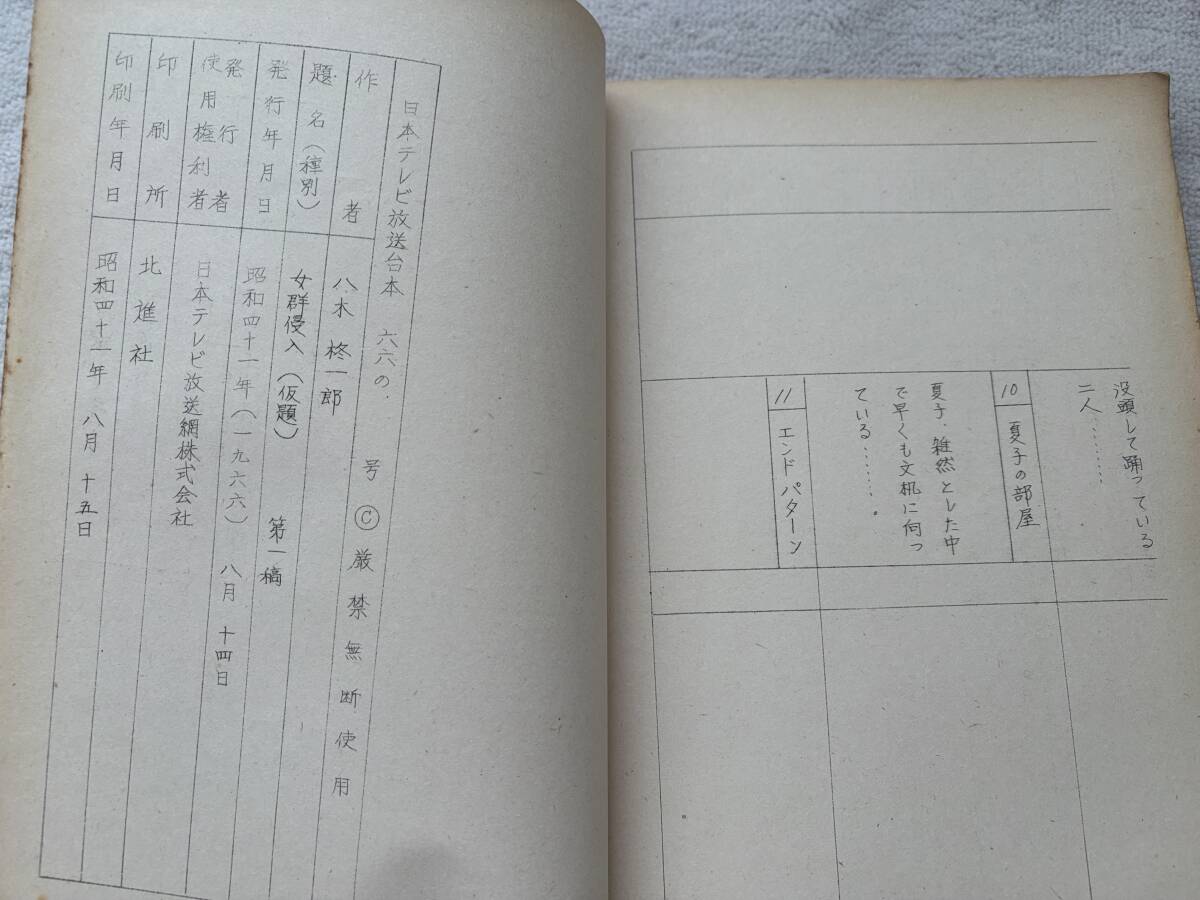 没頭して踊っている
二人………
10 夏子の部屋
夏子、雑然とした中
で早くも文机に向っ
ている……。
11 エンドパターン
日本テレビ放送台本 六六の 号 Ⓒ 厳禁無断使用
作者 八木柊一郎
題名(種別) 女群侵入(仮題) 第一稿
発行年月日 昭和四十一年(一九六六) 八月十四日
発行者
使用権利者 日本テレビ放送網株式会社
印刷所 北進社
印刷年月日 昭和四十一年 八月十五日